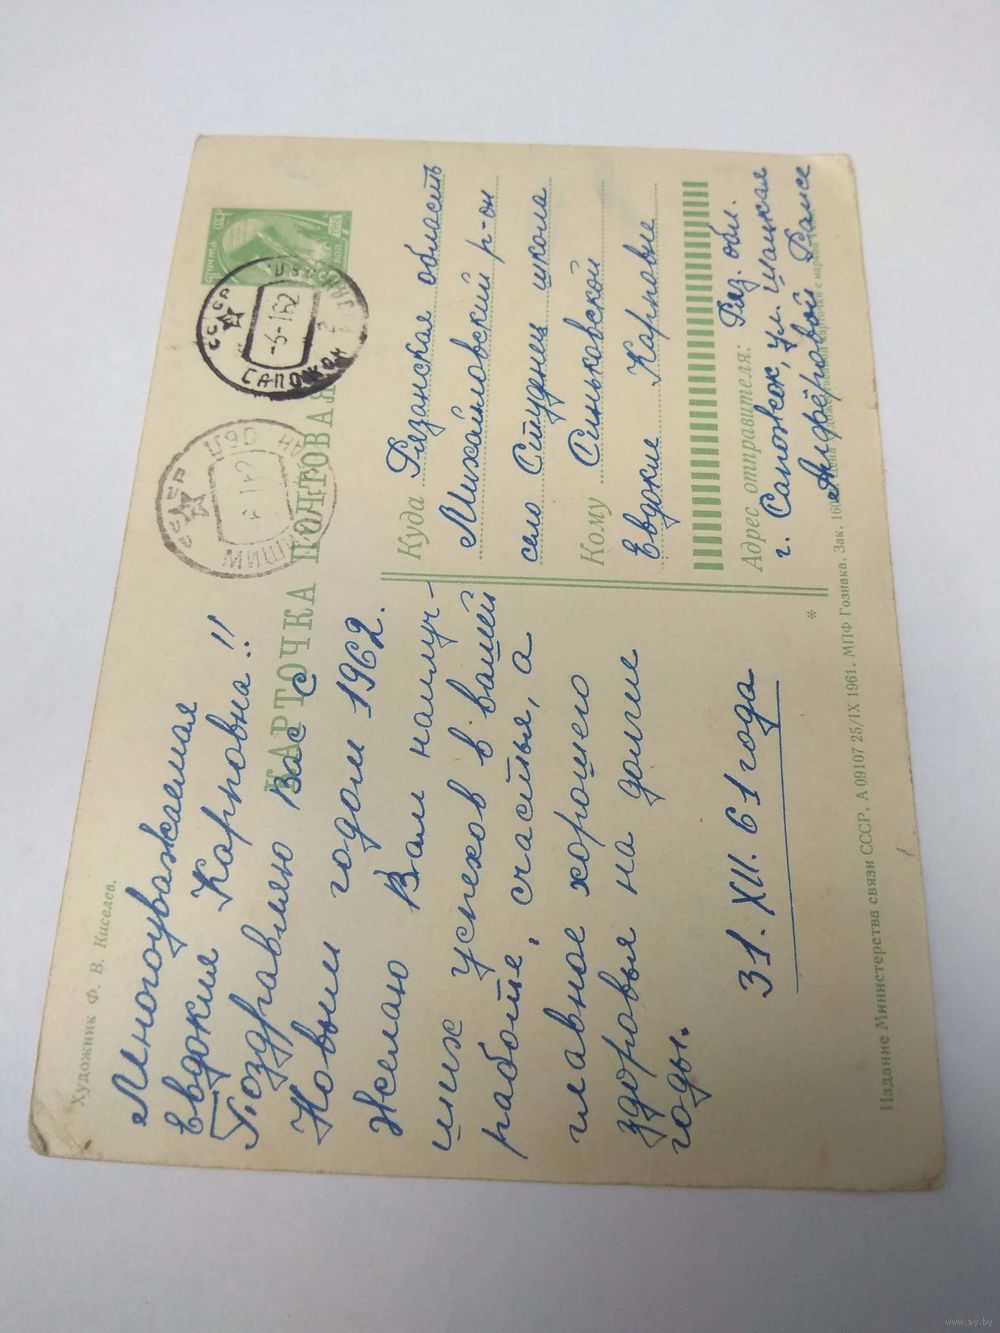 Художник Ф. В. Киселев.
Многоуважаемая
Евдокия Карповна!!
Поздравляю Вас с
Новым годом 1962.
Желаю Вам наилуч-
ших успехов в вашей
работе, счастья, а
главное хорошего
здоровья на долгие
годы.
31. XII. 61 года
КАРТОЧКА ПОЧТОВАЯ
ПОЧТА СССР
СССР
-6-1 62
САПОЖОК
СССР
Куда Рязанская область
Михайловский р-он
село Студнец школа
Кому Синьковской
Евдокие Карповне
Адрес отправителя: Ряз. обл.
г. Сапожок, ул. Шацкая
Алфёровой Раисе
Издание Министерства связи СССР. А 09107 25/IX 1961. МПФ Гознака. Зак. 160
www.ay.by